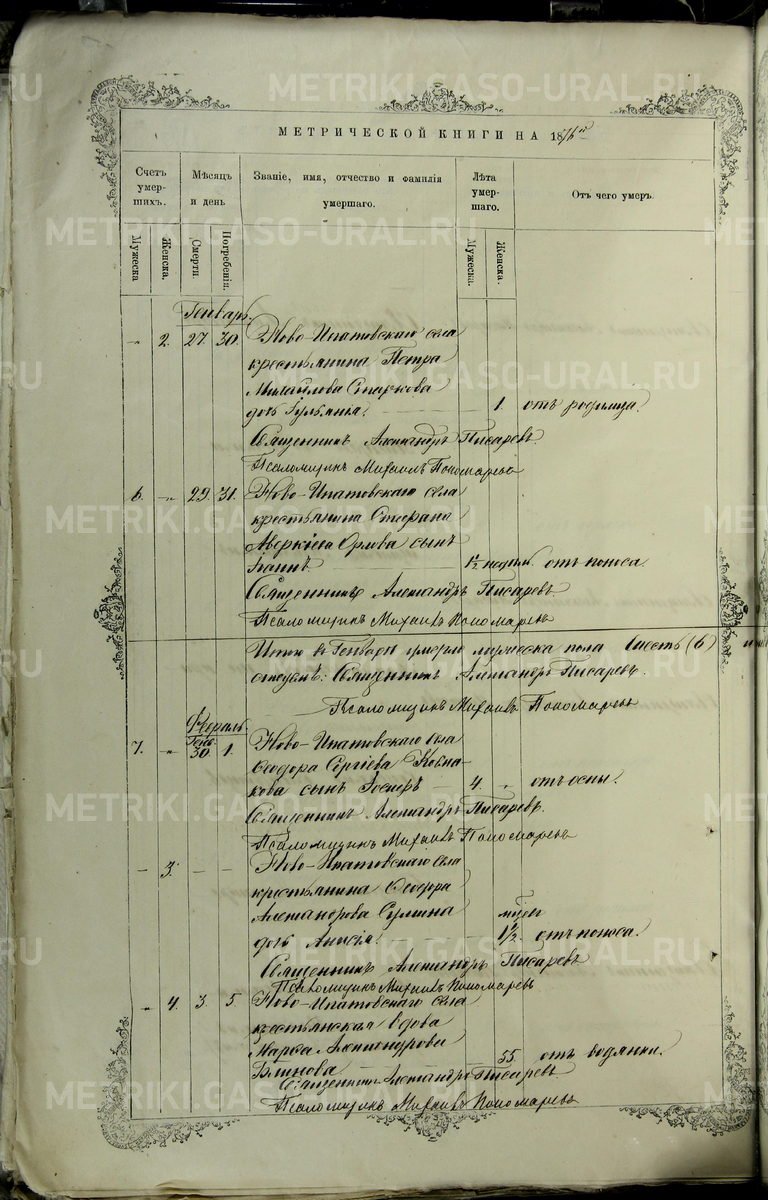 МЕТРИЧЕСКОЙ КНИГИ НА 18
Счетъ умер-шихъ.
Мѣсяцъ и день
Званіе, имя, отчество и фамилія умершаго.
Лѣта умер-шаго.
Отъ чего умеръ.
Мужеска
Женска.
Смерти.
Погребенія.
Мужеска.
Женска.
Генварь.
„ 2. 27. 30. Ново-Ипатовскаго села
крестьянина Петра
Михайлова Старкова
дочь Іульянія. 1. отъ родимца.
Священникъ Александръ Писаревъ.
Псаломщикъ Михаилъ Пономаревъ
6. „ 29. 31. Ново-Ипатовскаго села
крестьянина Стефана
Аверкіева Орлова сынъ
Іоаннъ. 1½ недѣл. отъ поноса.
Священникъ Александръ Писаревъ
Псаломщикъ Михаилъ Пономаревъ
Итого въ Генварѣ умерло мужеска пола шесть (6)
Священникъ Александръ Писаревъ.
Псаломщикъ Михаилъ Пономаревъ
Февраль.
Генв.
7. „ 30 1. Ново-Ипатовскаго села
Ѳеодора Сергіева
кова сынъ 4. „ отъ оспы.
Священникъ Александръ Писаревъ.
Псаломщикъ Михаилъ Пономаревъ
– 3. – – Ново-Ипатовскаго села
крестьянина Ѳеодора
Александрова
дочь Анисія. 1½. отъ поноса.
Священникъ Александръ Писаревъ
Псаломщикъ Михаилъ Пономаревъ
„ 4. 3. 5. Ново-Ипатовскаго села
крестьянская вдова
Марѳа Александрова
Блинова 55 отъ водянки.
Священникъ Александръ Писаревъ
Псаломщикъ Михаилъ Пономаревъ
METRIKI.GASO-URAL.RU